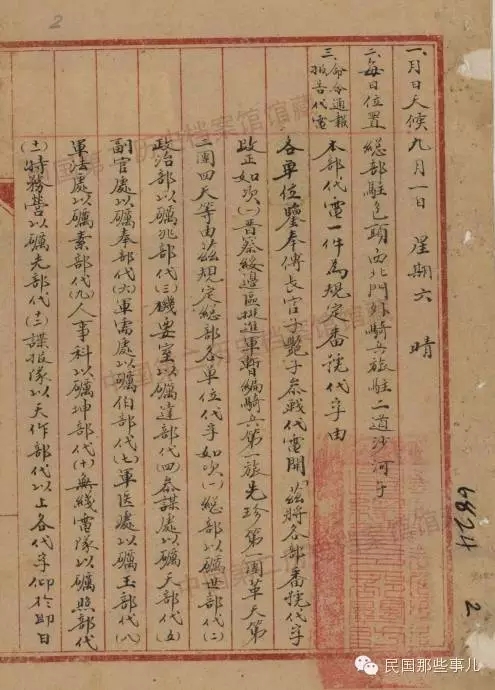 一、月日天候九月一日　星期六　晴
二、每日位置　总部駐包頭西北門外騎兵旅駐二道沙河子
三、命令通報報告代電
本部代電一件為規定番號代字由
各單位鑒奉傅長官子艷子參戰代電開茲將各部番號代字
改正如次(一)晋察綏邊區挺進軍暫編騎兵第一旅先珍第一團革天第
二團四天等由茲規定總部各單位代字如次(一)總部以礪世部代(二)
政治部以礪兆部代(三)機要室以礪達部代(四)參謀處以礪天部代(五)
副官處以礪奉部代(六)軍需處以礪伯部代(七)軍医處以礪玉部代(八)
軍法處以礪素部代(九)人事科以礪坤部代(十)無綫電隊以礪照部代
(十一)特務營以礪光部代(十二)諜报隊以天作部代以上各代字仰於即日
2
6824
2
民国那些事儿